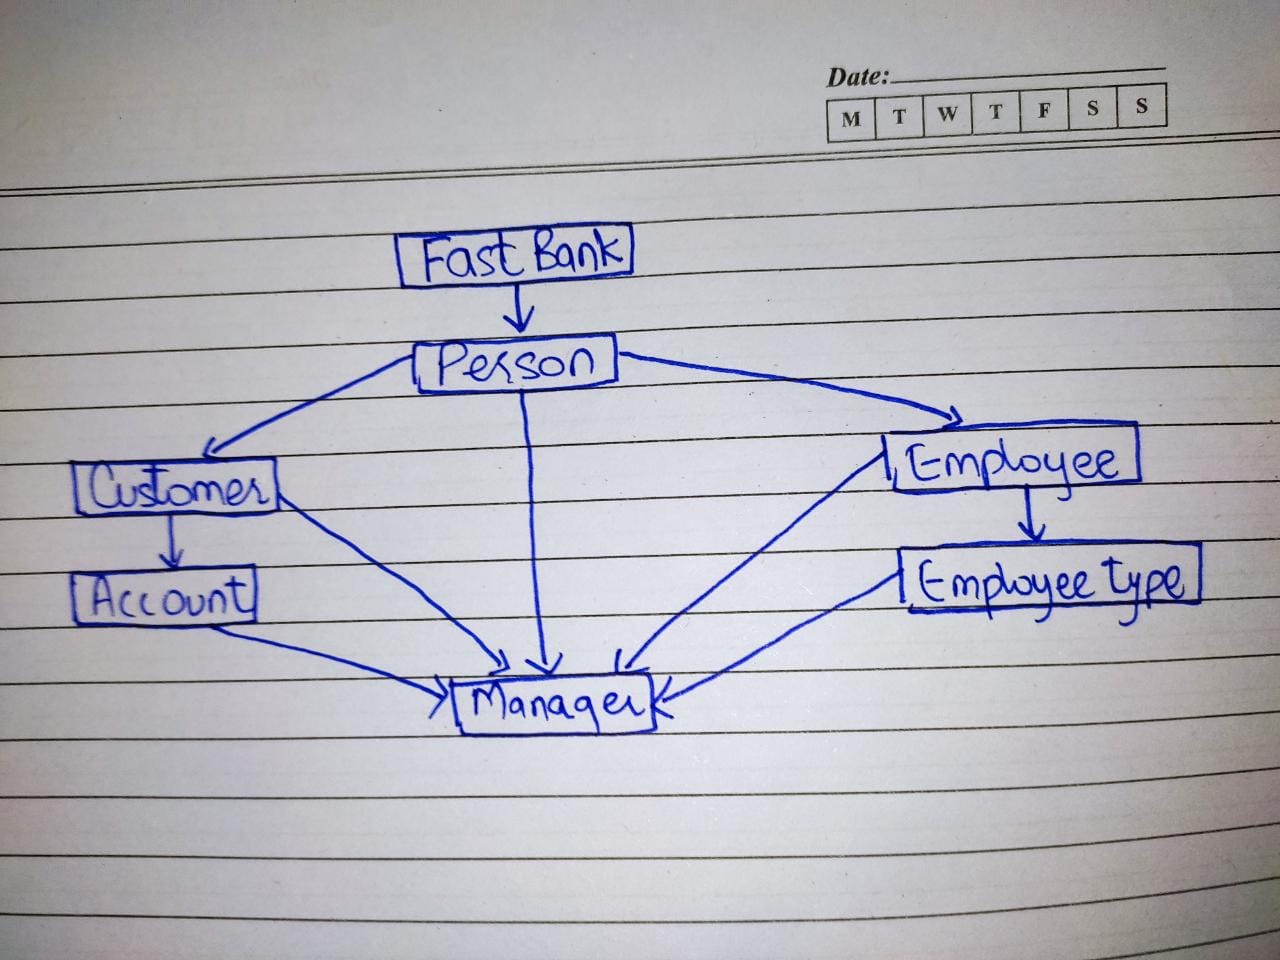 Date:
M T W T F S S
Fast Bank
Person
Customer
Employee
Account
Employee type
Manager